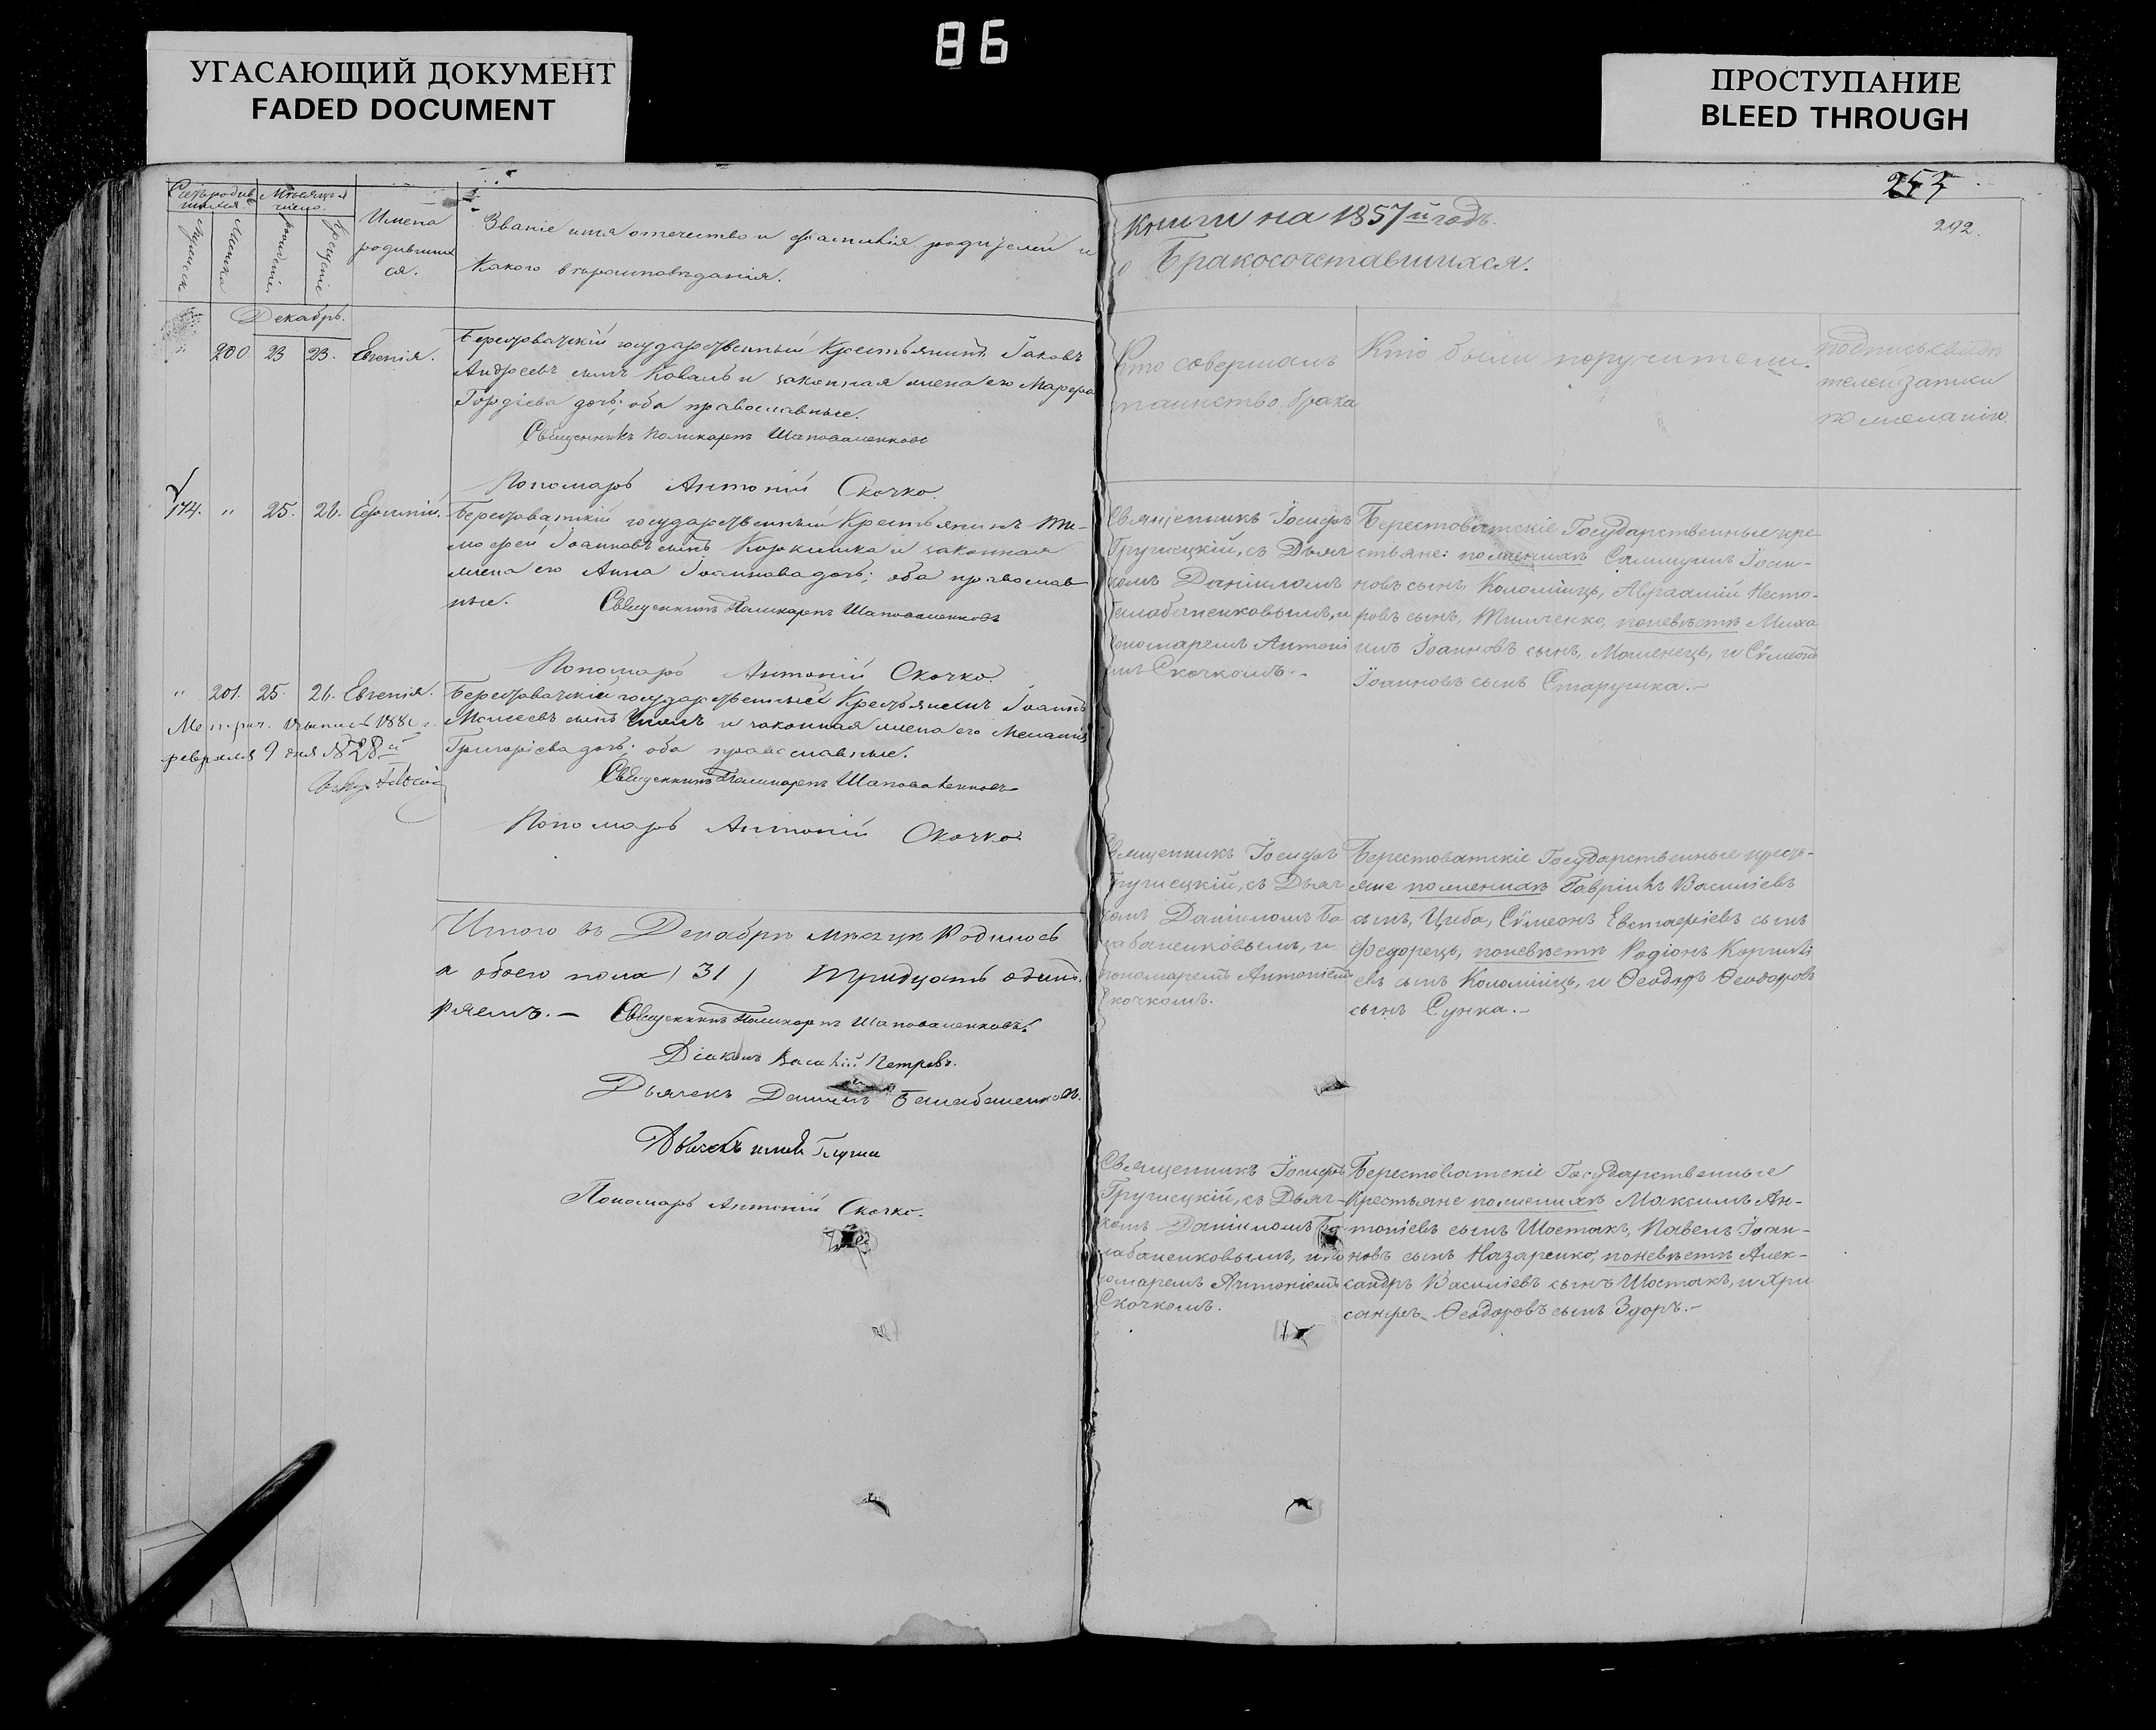 86
УГАСАЮЩИЙ ДОКУМЕНТ
FADED DOCUMENT
ПРОСТУПАНИЕ
BLEED THROUGH
Мѣсяцъ и
число
Имена
родивших
ся.
Званіе имя отечество и фамилія родителей и
какого вѣроисповѣданія.
Декабрь.
200 23 23. Евгенія.
Берестоватскій государственный Крестьянинъ Іаковъ
Андреевъ сынъ Коваль и законная жена его Марѳа
Гордіева дочь; оба православные.
Священникъ Поликарпъ Шаповаленковъ
Пономарь Антоній Скочко.
174. " 25. 26. Евгеній.
Берестоватскій государственный Крестьянинъ Ти-
мофей Іоанновъ сынъ и законная
жена его Анна Іоаннова дочь; оба православ
ные. Священникъ Поликарпъ Шаповаленковъ
Пономарь Антоній Скочко.
" 201. 25. 26. Евгенія.
Берестоватскій государственный Крестьянинъ Іоаннъ
Моисеевъ сынъ и законная жена его Меланія
Григоріева дочь; оба православные.
Метрич. выпись 1880 г.
февраля 9 дня № 28й
Священникъ Поликарпъ Шаповаленковъ
Пономарь Антоній Скочко
Итого въ Декабрѣ мѣсяцѣ родилось
а обоего пола (31) тридцать одинъ.
Священникъ Поликарпъ Шаповаленковъ.
Діаконъ Василій Петровъ.
Дьячекъ Даніилъ Балабаненковъ.
Пономарь Антоній Скочко.
257
292.
книги на 1857й годъ.
о Бракосочетавшихся.
Кто совершалъ
таинство брака
Кто были поручители.
подпись свидѣ
телей записи
по желанію.
Священникъ Іосифъ
Гружецкій, съ Дьяч
комъ Даніиломъ
Балабаненковымъ, и
пономаремъ Антоні
емъ Скочкомъ.-
Берестоватскіе Государственные кре-
стьяне: по женихѣ Самуилъ Іоан-
новъ сынъ Коломіицъ, Авраамій Несто-
ровъ сынъ, Тимченко, по невѣстѣ Миха
илъ Іоанновъ сынъ, и Сѵмеонъ
Іоанновъ сынъ Старушка.-
Священникъ Іосифъ
Гружецкій, съ Дьяч
комъ Даніиломъ Ба
лабаненковымъ, и
пономаремъ Антоніемъ
Скочкомъ.
Берестоватскіе Государственные кресть-
яне по женихѣ Гавріилъ Василіевъ
сынъ, Циба, Сѵмеонъ Евстафіевъ сынъ
Федорецъ, по невѣстѣ Родіонъ Корнилі
евъ сынъ Коломіицъ, и Ѳеодоръ Ѳеодоровъ
сынъ Сунка.-
Священникъ Іосифъ
Гружецкій, съ Дьяч-
комъ Даніиломъ Ба
лабаненковымъ, и по
номаремъ Антоніемъ
Скочкомъ.
Берестоватскіе Государственные
Крестьяне по женихѣ Максимъ Ан-
тоніевъ сынъ Шостакъ, Павелъ Іоан-
новъ сынъ Назаренко, по невѣстѣ Алек-
сандръ Василіевъ сынъ Шостакъ, и Хри
санфъ Ѳеодоровъ сынъ Здоръ.-